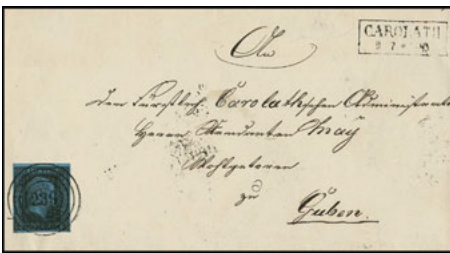 An
CAROLATH
9 7
den Fürstlich Carolathschen Administrator
Herrn Rendanten May
Wohlgeboren
zu
Guben.